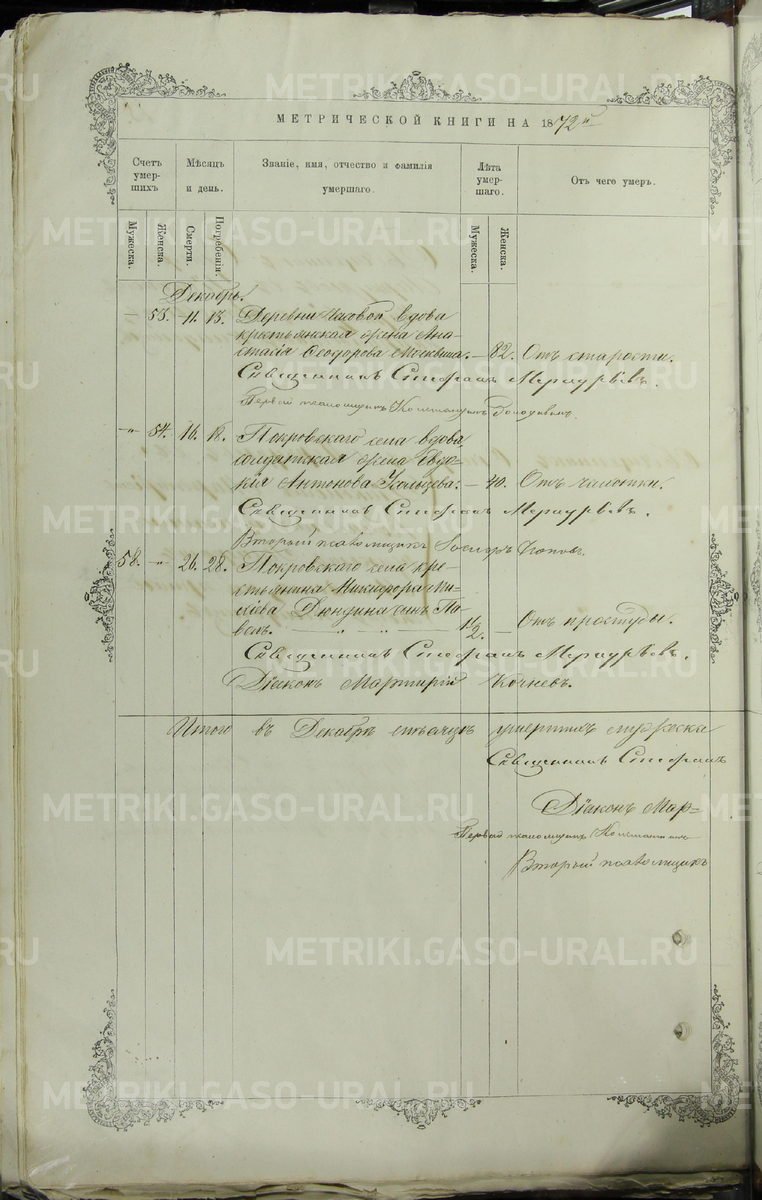 МЕТРИЧЕСКОЙ КНИГИ НА 1872й
Счетъ умер-шихъ
Мѣсяцъ и день.
Званіе, имя, отчество и фамилія умершаго.
Лѣта умер-шаго.
Отъ чего умеръ.
Мужеска.
Женска.
Смерти.
Погребенія.
Мужеска.
Женска.
Декабрь.
— 53. 11. 13. Деревни вдова
крестьянская жена Ана-
стасія Ѳеодорова — 82. Отъ старости.
Священникъ Стефанъ Меркурьевъ.
Первый псаломщикъ Константинъ
" 54. 16. 18. Покровскаго села вдова
солдатская жена Евдо-
кія Антонова — 40. Отъ чахотки.
Священникъ Стефанъ Меркурьевъ.
Второй псаломщикъ Поповъ.
58. " 26. 28. Покровскаго села кре-
стьянина Никифора
сынъ Па-
велъ. 1/2. — Отъ простуды.
Священникъ Стефанъ Меркурьевъ.
Діаконъ Мартирій Кочневъ.
Итого въ Декабрѣ мѣсяцѣ умершихъ мужеска
Священникъ Стефанъ
Діаконъ Мар-
Первый псаломщикъ Константинъ
Второй псаломщикъ
METRIKI.GASO-URAL.RU